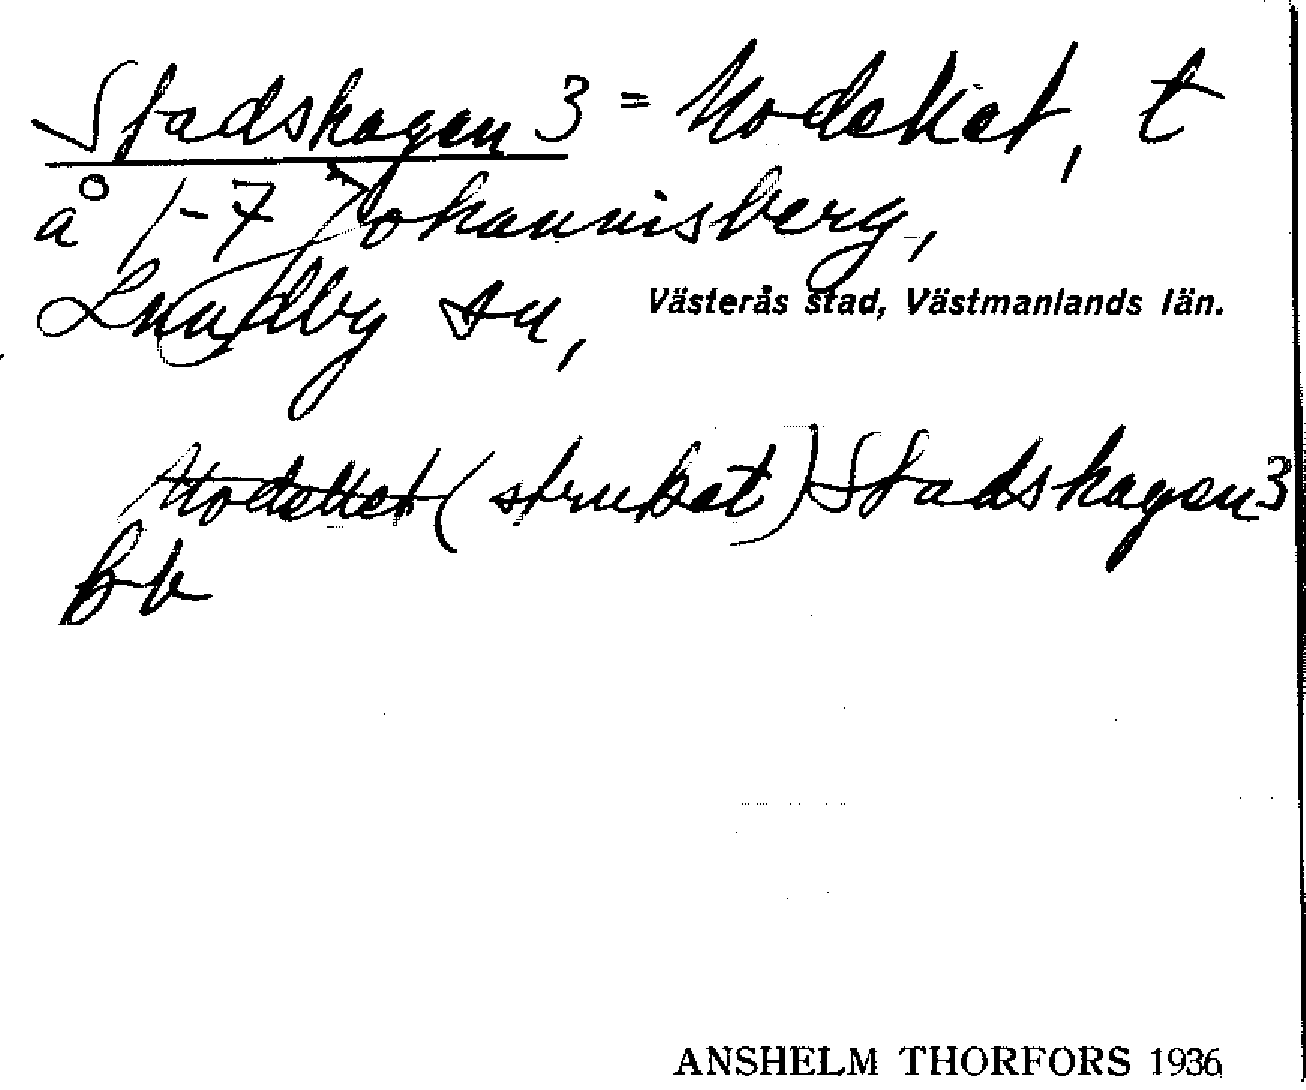 Stadshagen 3 = Modellet, t
å 1-7 Johannisberg,
Lundby sn, Västerås stad, Västmanlands län.
Modellet (struket) Stadshagen 3
bb
ANSHELM THORFORS 1936